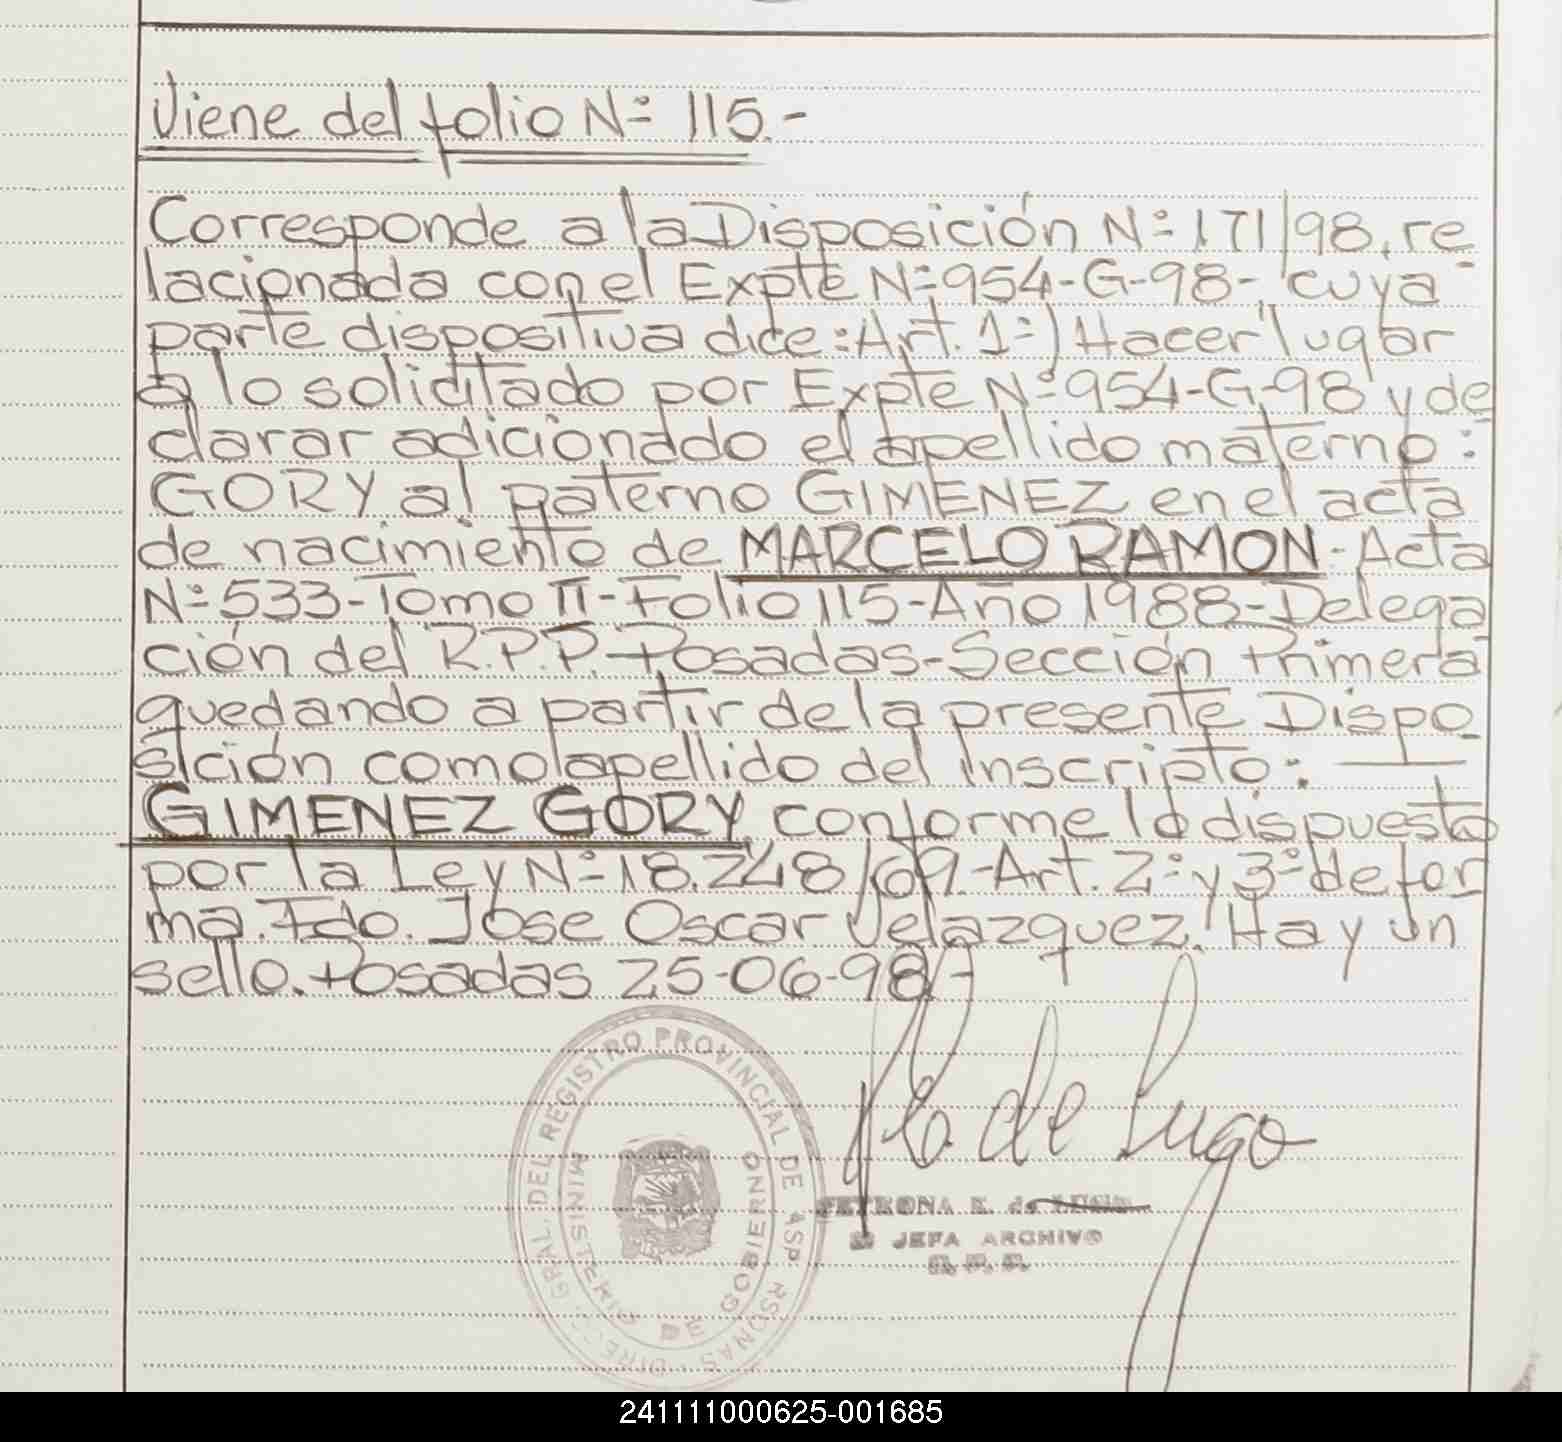 Viene del folio Nº 115.-
Corresponde a la Disposición Nº 171/98, re
lacionada con el Expte Nº 954-G-98-, cuya
parte dispositiva dice: Art. 1º) Hacer lugar
a lo solicitado por Expte Nº 954-G-98 y de
clarar adicionado el apellido materno:
GORY al paterno GIMENEZ en el acta
de nacimiento de MARCELO RAMON - Acta
Nº 533 - Tomo II - Folio 115 - Año 1988 - Delega
ción del R.P.P. - Posadas - Sección Primera
quedando a partir de la presente Dispo
sición como apellido del inscripto:
GIMENEZ GORY, conforme lo dispuesto
por la Ley Nº 18.248/69.-Art. 2º y 3º de for
ma. Fdo. Jose Oscar Velazquez. Hay un
sello. Posadas 25-06-98.-
de Lugo
PETRONA E. de LUGO
JEFA ARCHIVO
R. P. P.
GRAL. DEL REGISTRO PROVINCIAL DE
MINISTERIO DE GOBIERNO
241111000625-001685